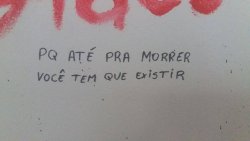 PQ ATÉ PRA MORRER
VOCÊ TEM QUE EXISTIR